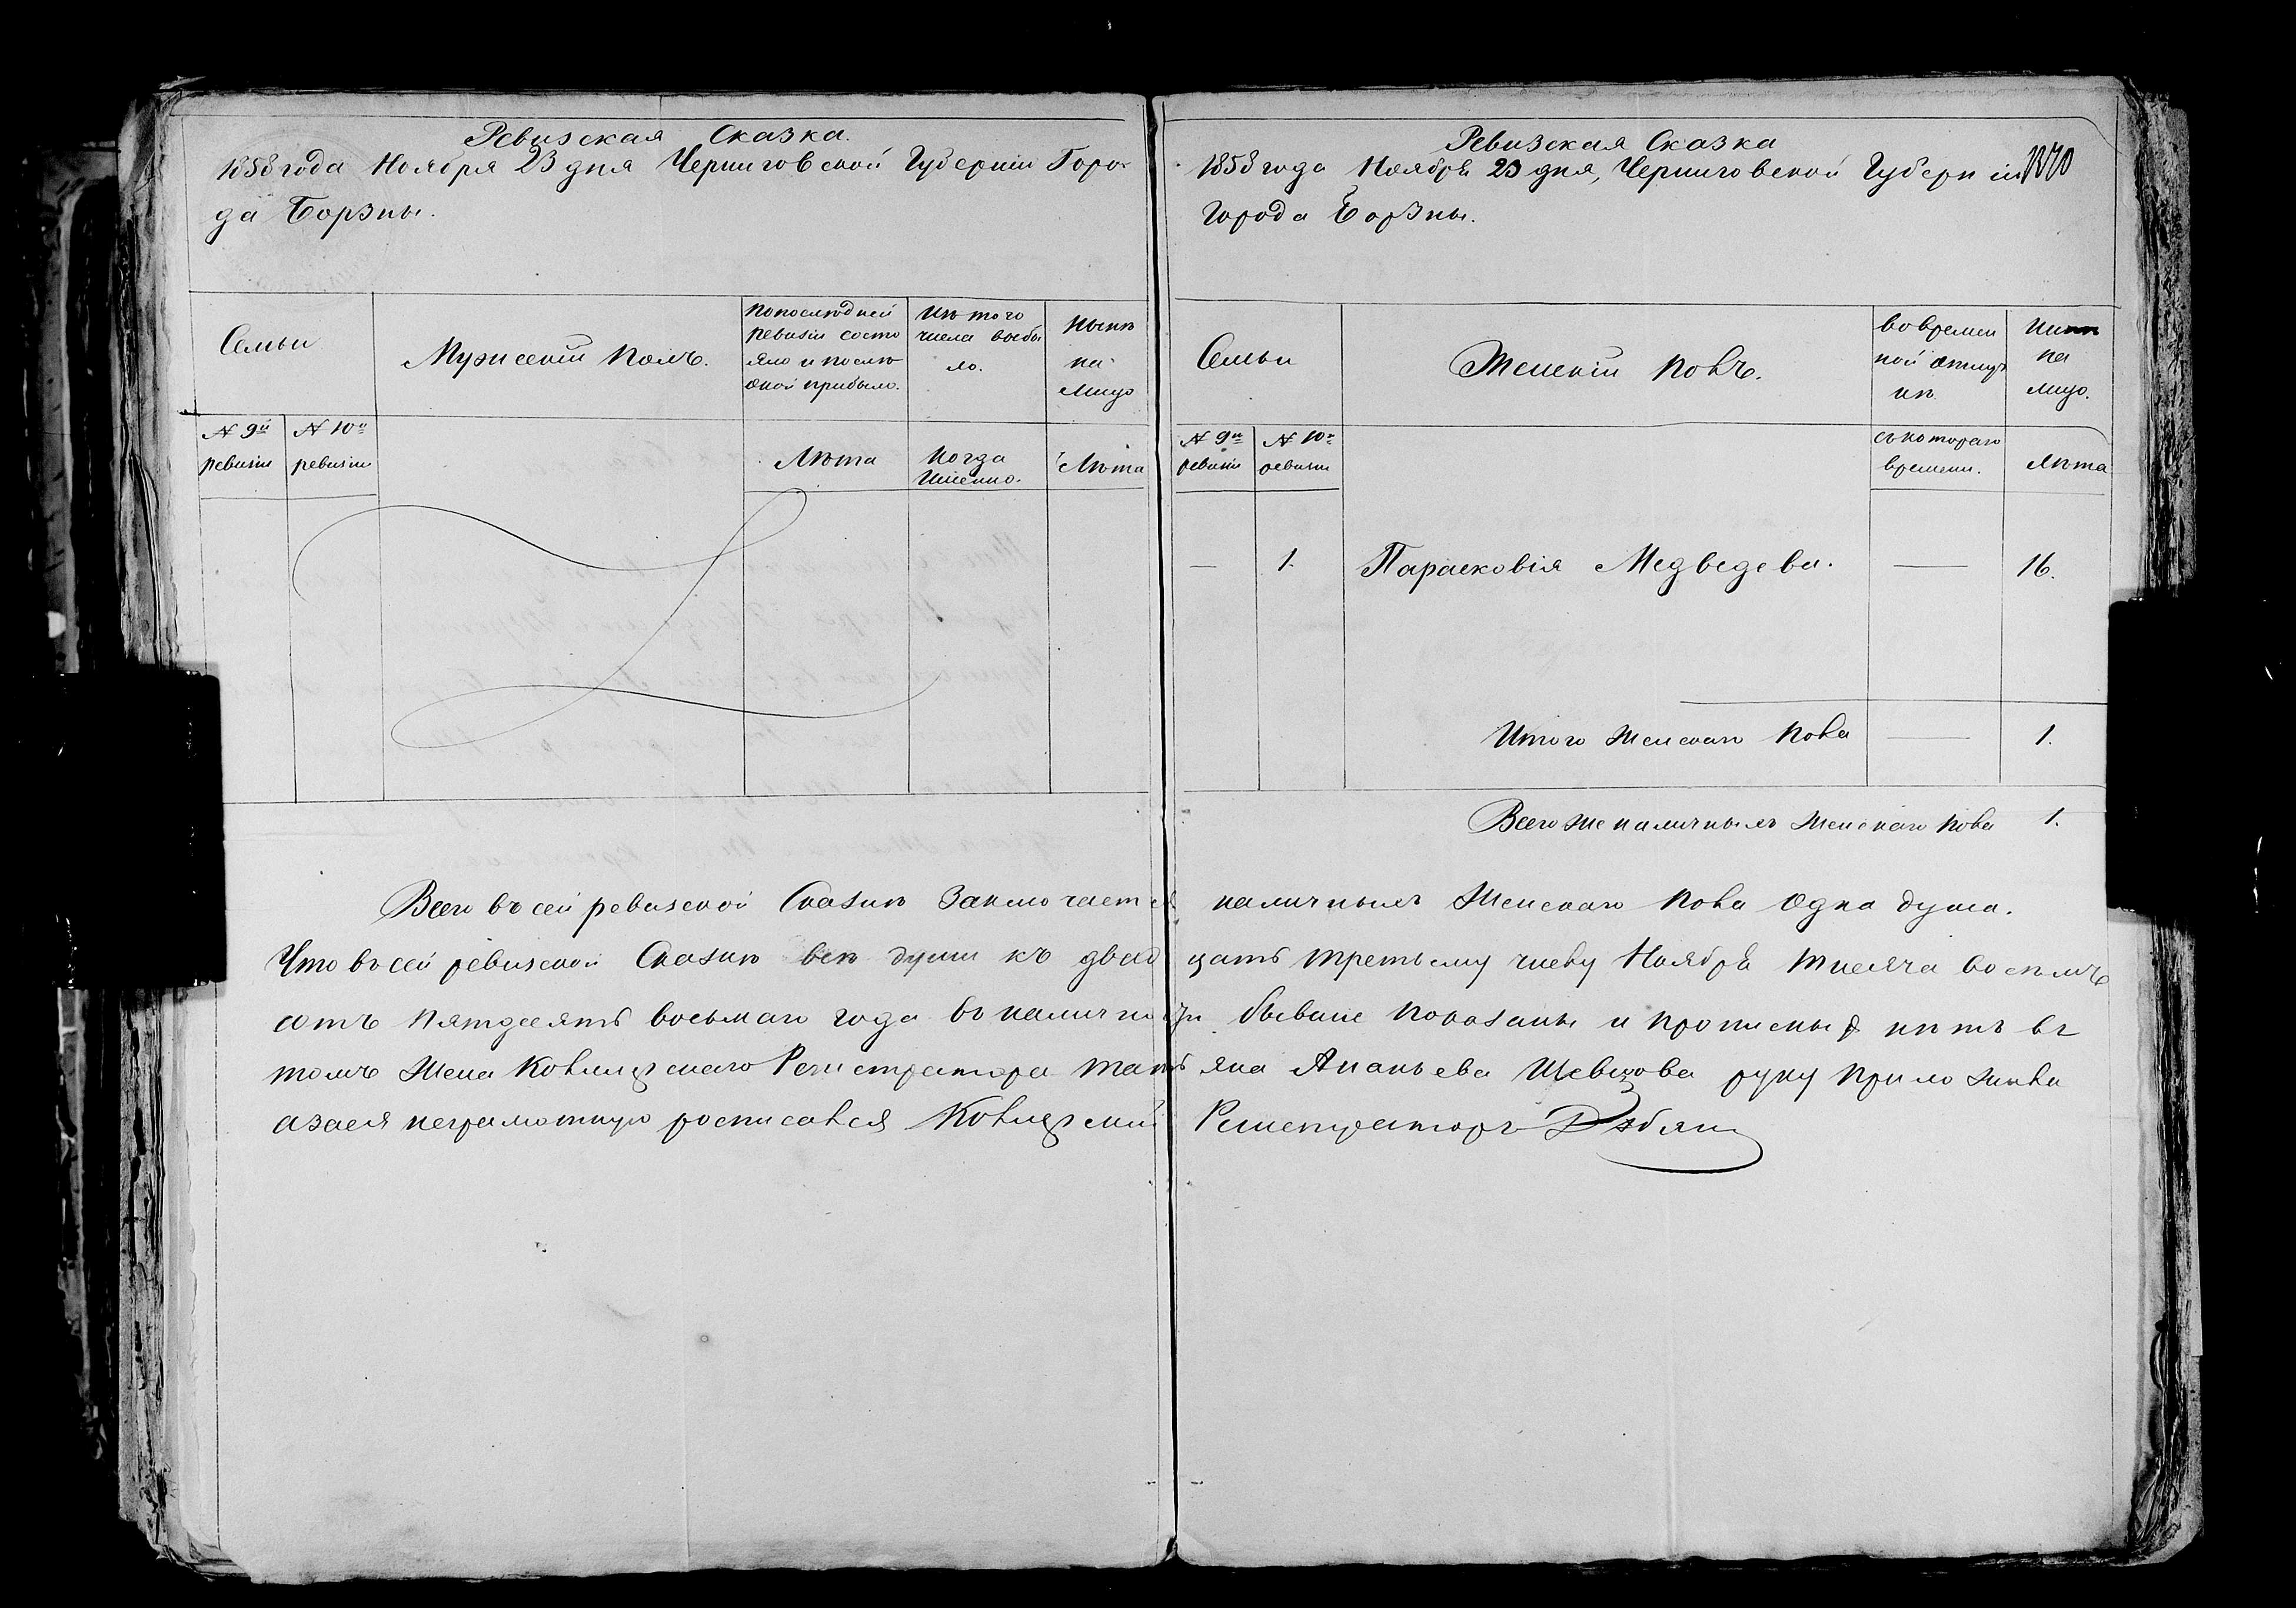 Ревизская Сказка.
1858 года Ноября 23 дня Черниговской Губернiи Горо-
да Борзны.
Семьи
Мужескiй Полъ.
По последней
ревизiи состо
яло и после
оной прибыло.
Изъ того
числа выбы
ло.
Ныне
на
лицо
№ 9й
ревизiи
№ 10й
ревизiи
Лета
Когда
Именно.
Лета
Ревизская Сказка
1858 года Ноября 23 дня, Черниговской Губернiи
Города Борзны.
1370
Семьи
Женскiй полъ.
Во времен
ной отлуч
ке
Ныне
на
лицо.
№ 9й
ревизiи
№ 10й
ревизiи
съ котораго
времени.
Лета
— 1. Парасковiя Медведева. — 16.
Итого женскаго пола — 1.
Всего же наличныхъ женскаго пола 1.
Всего въ сей ревизской Сказке заключается наличныхъ женскаго пола одна душа.
Что въ сей ревизской Сказке все души къ двадцать третьему числу Ноября тысяча восемь
сотъ пятдесятъ восьмаго года въ наличности бывшiе показаны и прописныхъ нетъ въ
томъ жена Колежскаго Регистратора Татьяна Ананьева Шевцова руку приложила
а за ея неграмотную росписался Колежскiй Регистраторъ